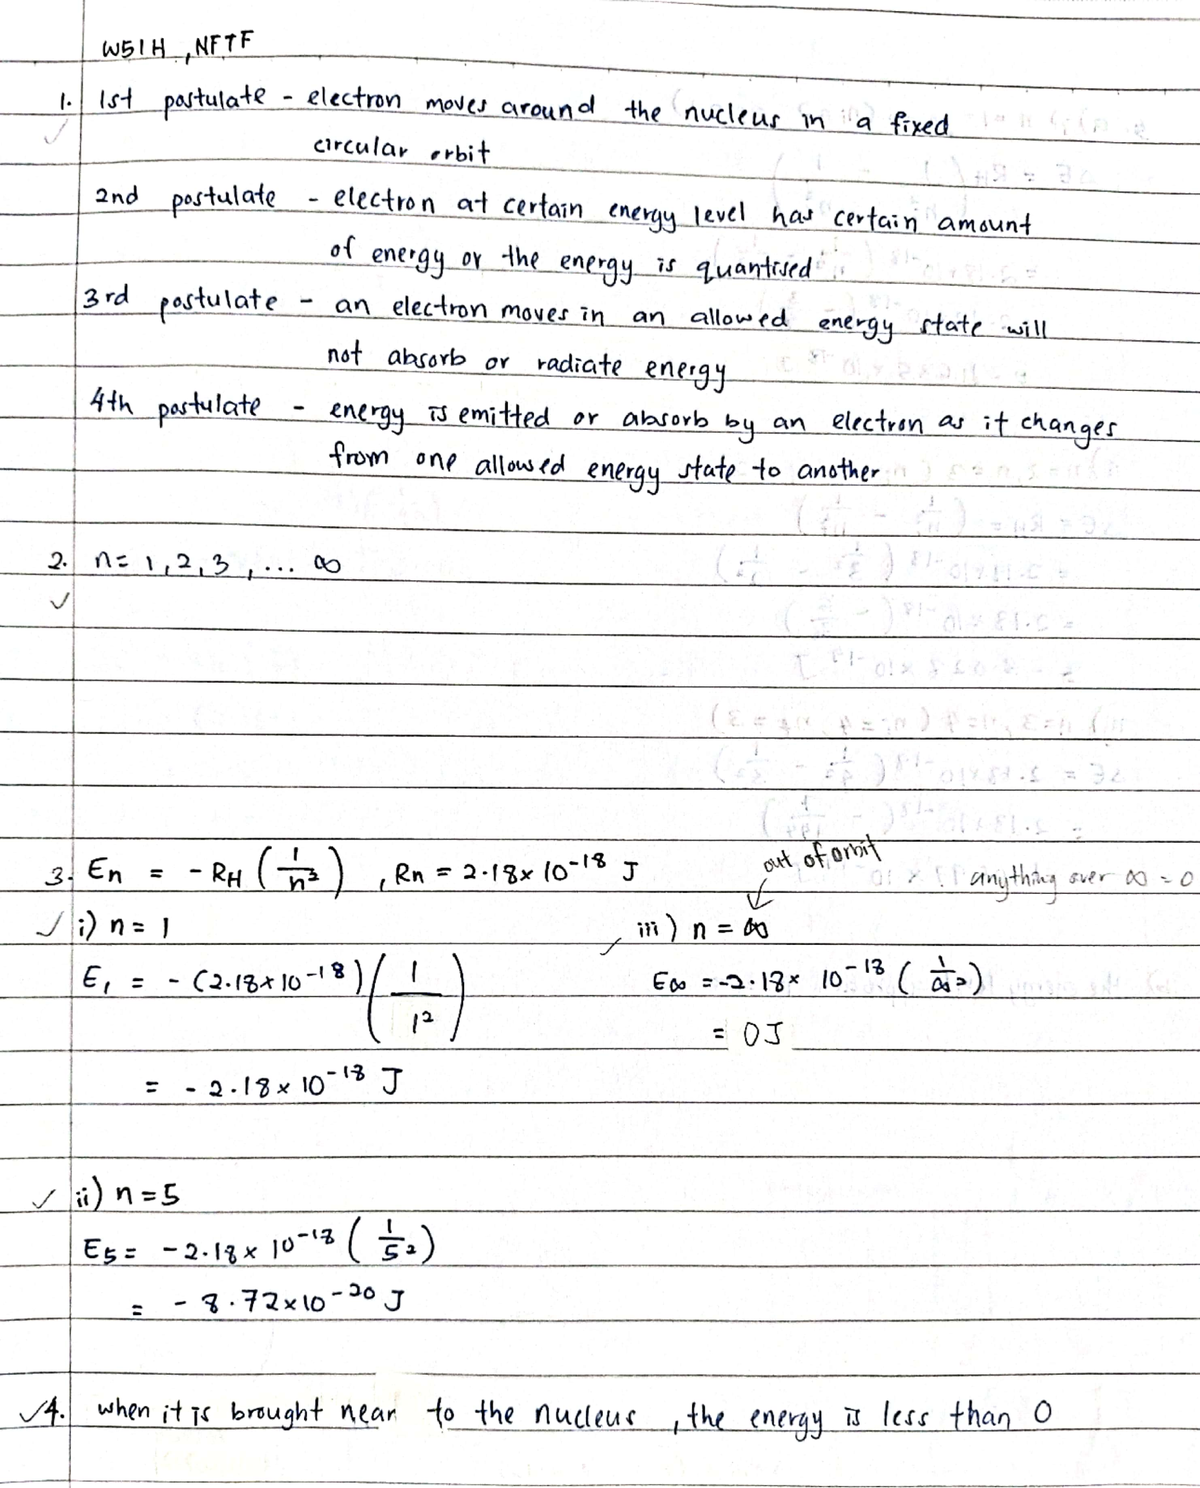 W51H , NFTF
1. 1st postulate - electron moves around the nucleus in a fixed
circular orbit
2nd postulate - electron at certain energy level has certain amount
of energy or the energy is quantised
3rd postulate - an electron moves in an allowed energy state will
not absorb or radiate energy
4th postulate - energy is emitted or absorb by an electron as it changes
from one allowed energy state to another
2. n = 1, 2, 3, ... ∞
3. En = - RH (1/n²) , Rn = 2.18 x 10⁻¹⁸ J
out of orbit
anything over ∞ = 0
i) n = 1
E₁ = - (2.18 x 10⁻¹⁸) (1/1²)
= - 2.18 x 10⁻¹⁸ J
iii) n = ∞
E∞ = -2.18 x 10⁻¹⁸ (1/∞²)
= 0 J
ii) n = 5
E5 = -2.18 x 10⁻¹⁸ (1/5²)
= - 8.72 x 10⁻²⁰ J
4. when it is brought near to the nucleus , the energy is less than 0